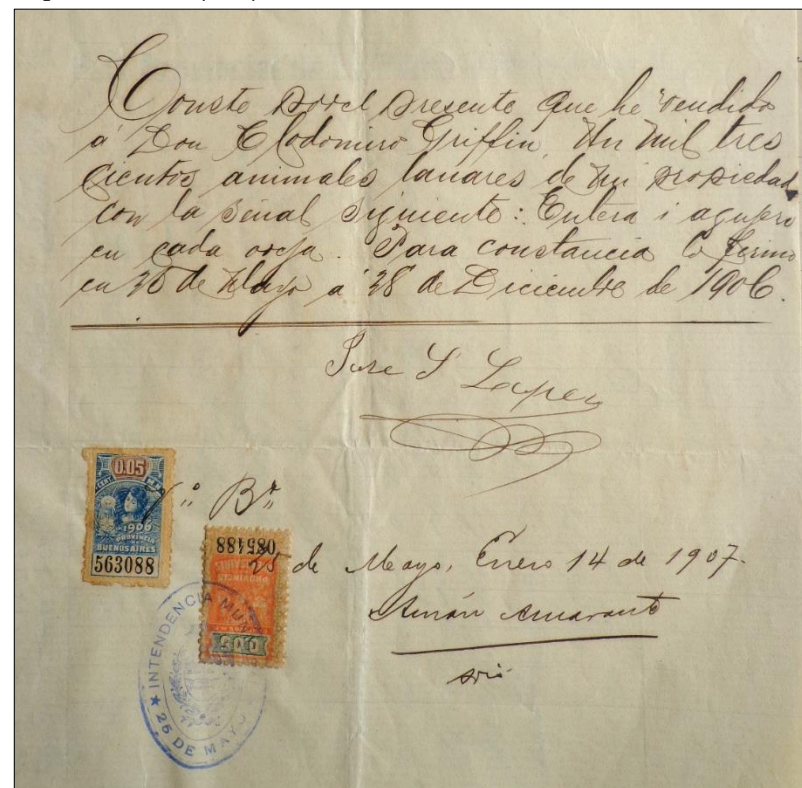 Conste por el presente que he vendido
a' Don Clodomiro Griffin, Un mil tres
cientos animales lanares de mi propiedad
con la señal siguiente: Entera i agujero
en cada oreja. Para constancia lo firmo
en 25 de Mayo a' 28 de Diciembre de 1906.
Jose S Lopez
Vº Bº
0.05
1906
PROVINCIA
BUENOS AIRES
563088
085488
25 de Mayo, Enero 14 de 1907.
Amarante
srio
INTENDENCIA MU
25 DE MAYO